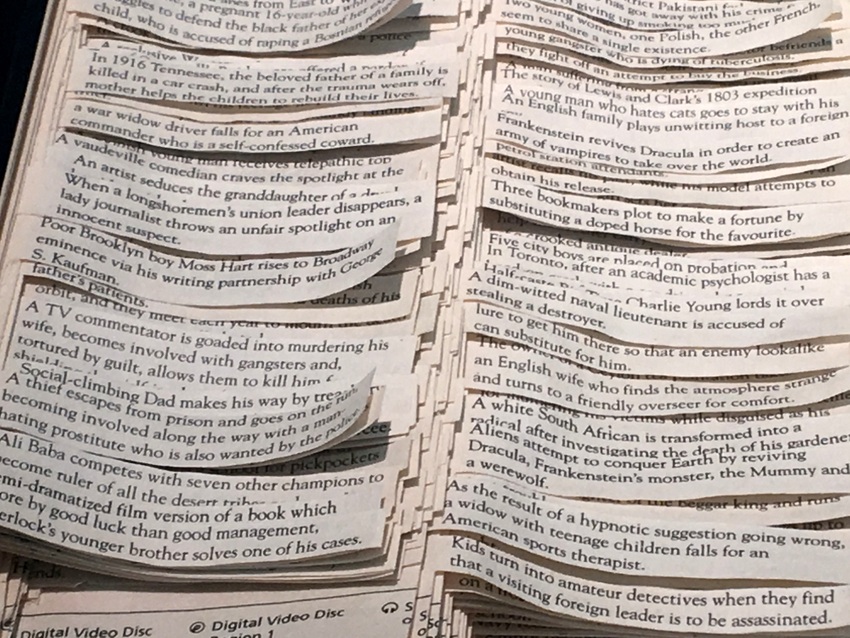 a pregnant 16-year-old
to defend the black father of her
child, who is accused of raping a Bosnian
In 1916 Tennessee, the beloved father of a family is
killed in a car crash, and after the trauma wears off,
mother helps the children to rebuild their lives.
a war widow driver falls for an American
commander who is a self-confessed coward.
young man receives telepathic
A vaudeville comedian craves the spotlight at the
An artist seduces the granddaughter of a
When a longshoremen's union leader disappears, a
lady journalist throws an unfair spotlight on an
innocent suspect.
Poor Brooklyn boy Moss Hart rises to Broadway
eminence via his writing partnership with George
S. Kaufman.
deaths of his
father's patients.
orbit, and they meet each year to
A TV commentator is goaded into murdering his
wife, becomes involved with gangsters and,
tortured by guilt, allows them to kill him
Social-climbing Dad makes his way by
A thief escapes from prison and goes on the run,
becoming involved along the way with a man-
hating prostitute who is also wanted by the police.
for pickpockets
Ali Baba competes with seven other champions to
become ruler of all the desert
semi-dramatized film version of a book which
more by good luck than good management,
Sherlock's younger brother solves one of his cases.
Digital Video Disc
Digital Video Disc
Region 1
strict Pakistani
has got away with his crime
of giving up smoking too
Two young women, one Polish, the other French,
seem to share a single existence.
befriends a
young gangster who is dying of tuberculosis.
they fight off an attempt to buy the business.
The story of Lewis and Clark's 1803 expedition
A young man who hates cats goes to stay with his
An English family plays unwitting host to a foreign
Frankenstein revives Dracula in order to create an
army of vampires to take over the world.
petrol station attendants.
while his model attempts to
obtain his release.
Three bookmakers plot to make a fortune by
substituting a doped horse for the favourite.
crooked antique dealer
Five city boys are placed on probation and
In Toronto, after an academic psychologist has a
Charlie Young lords it over
A dim-witted naval lieutenant is accused of
stealing a destroyer.
lure to get him there so that an enemy lookalike
can substitute for him.
The owner
an English wife who finds the atmosphere strange
and turns to a friendly overseer for comfort.
while disguised as his
A white South African is transformed into a
radical after investigating the death of his gardener
Aliens attempt to conquer Earth by reviving
Dracula, Frankenstein's monster, the Mummy and
a werewolf.
the beggar king and runs
As the result of a hypnotic suggestion going wrong,
a widow with teenage children falls for an
American sports therapist.
Kids turn into amateur detectives when they find
that a visiting foreign leader is to be assassinated.
on a